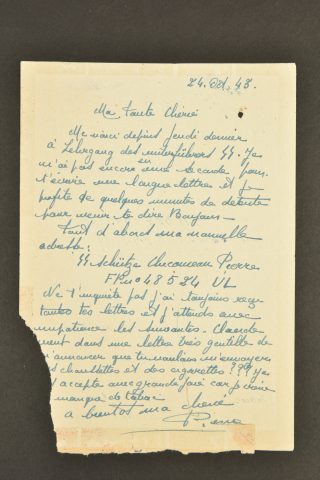 24. Oct. 43.
Ma tante Chérie
Me voici depuis Jeudi dernier
à Lehrgang des unterführers SS. Je
n'ai pas encore eu une seconde pour
t'écrire une longue lettres et je
profite de quelques minutes de détente
pour venir te dire Bonjour –
Tout d'abord ma nouvelle
adresse:
SS Schütze Pierre
FPno 48584 UL
Ne t'inquiète pas j'ai toujours reçu
toutes tes lettres et j'attends avec
impatience les suivantes.
dans une lettre très gentille de
m'annoncer que tu voulais m'envoyer
des chaussettes et des cigarettes ??? Je
accepte avec grande joie car je
manque de tabac
a bientot ma cherie
Pierre